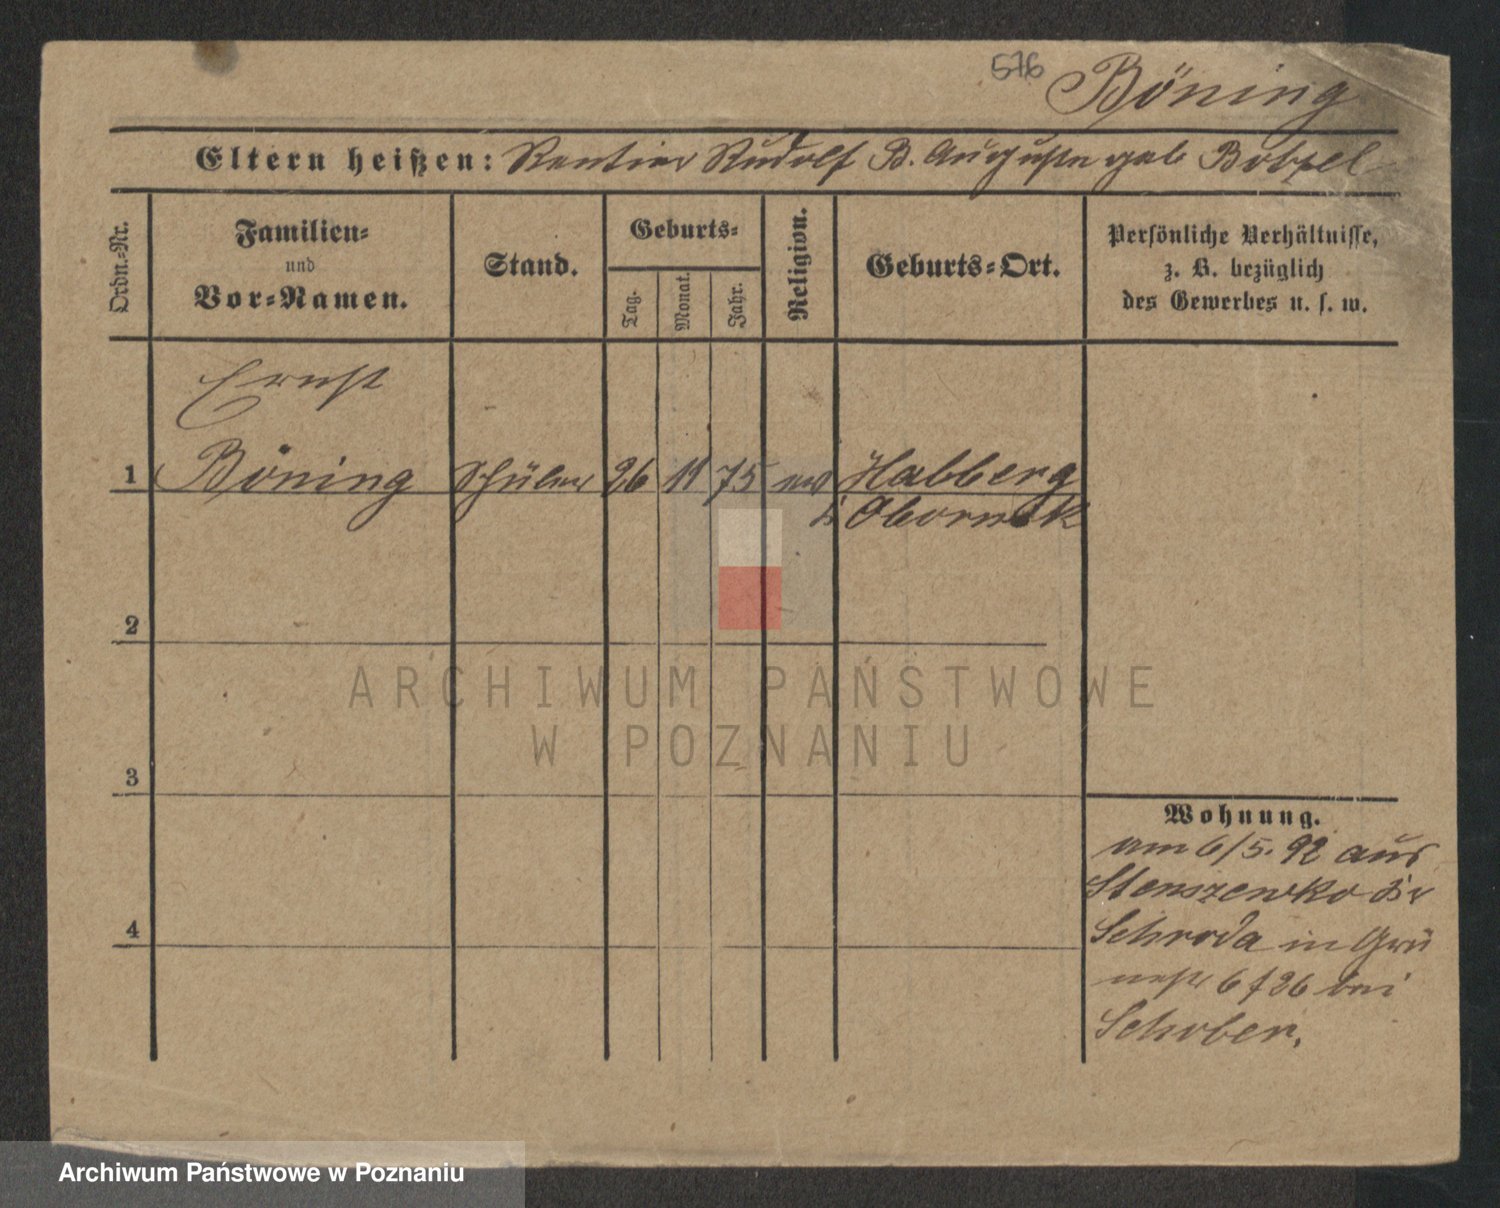 576 Böning
Eltern heißen: Rentier Rudolf B. Auguste geb Botzel
Ordn.-Nr.
Familien-
und
Vor-Namen.
Stand.
Geburts-
Tag.
Monat.
Jahr.
Religion.
Geburts-Ort.
Persönliche Verhältnisse,
z. B. bezüglich
des Gewerbes u. s. w.
Ernst
1 Böning Schüler 26 11 75 ev Habberg
Obornik
2
3
4
ARCHIWUM PAŃSTWOWE
W POZNANIU
Wohnung.
am 6/5. 92 aus
Stenszewko Kr
Schroda in Grü
nestr 6 f 26 bei
Schober.
Archiwum Państwowe w Poznaniu